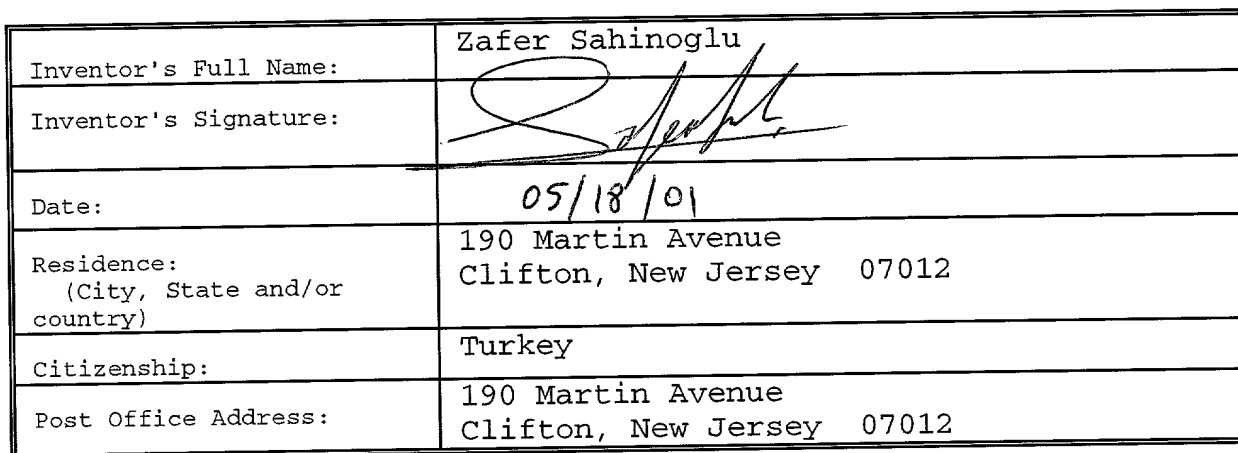 Inventor's Full Name:
Zafer Sahinoglu
Inventor's Signature:
Date:
05/18/01
Residence:
(City, State and/or
country)
190 Martin Avenue
Clifton, New Jersey 07012
Citizenship:
Turkey
Post Office Address:
190 Martin Avenue
Clifton, New Jersey 07012